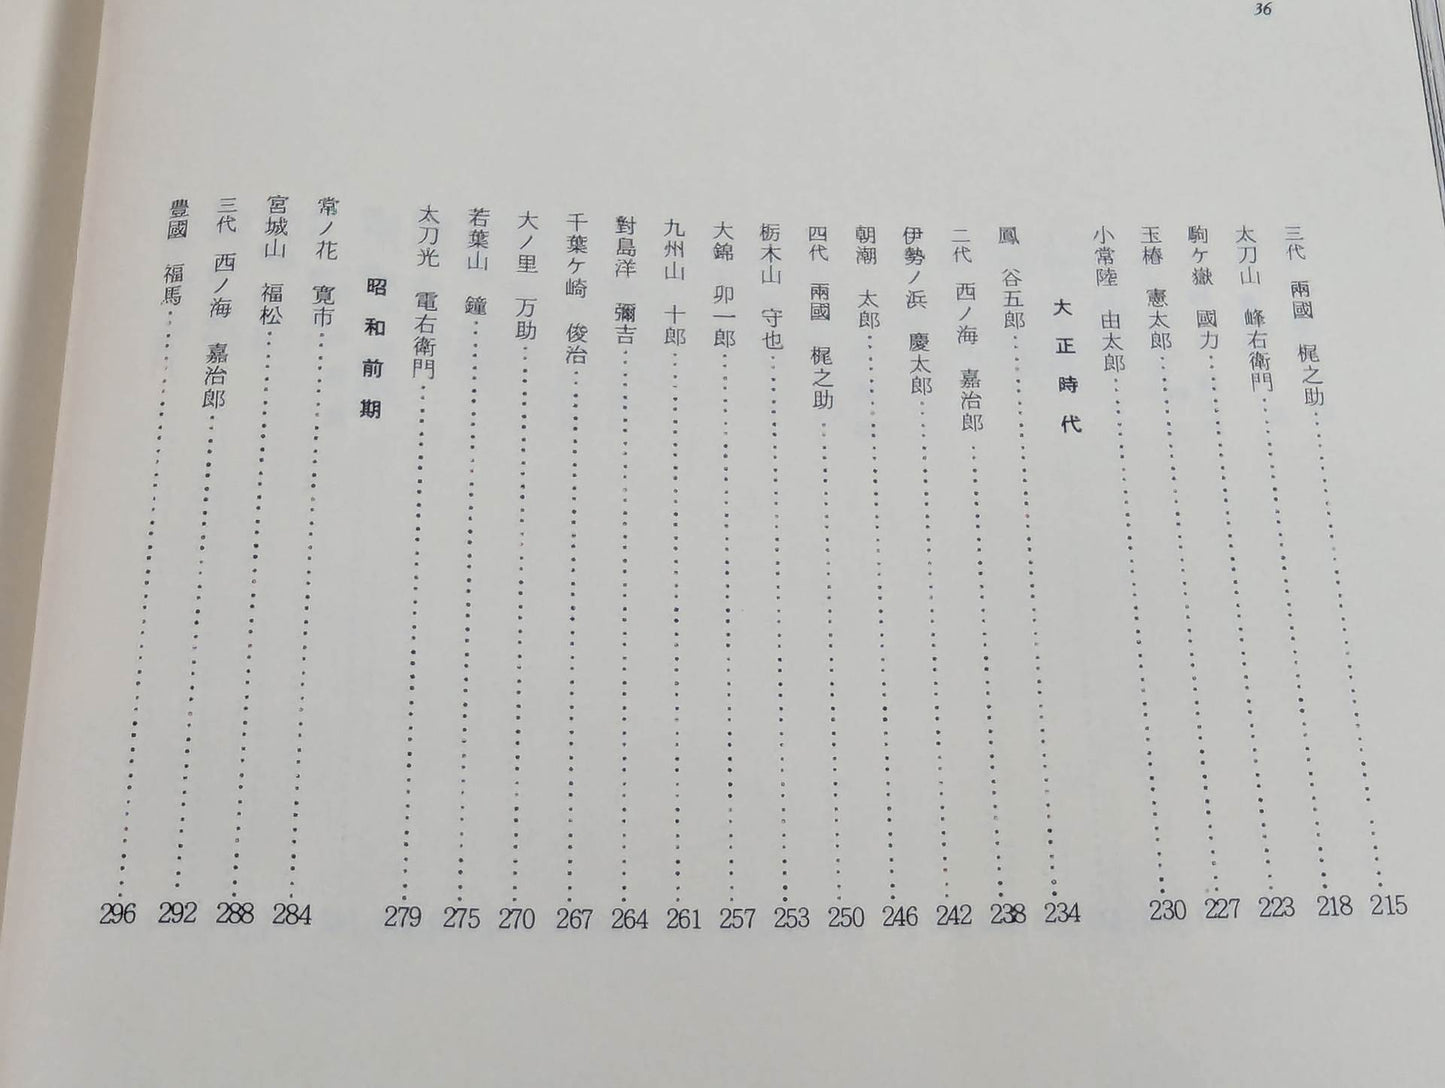 36
三代 兩國 梶之助 215
太刀山 峰右衛門 218
駒ケ嶽 國力 223
玉椿 憲太郎 227
小常陸 由太郎 230
大正時代
鳳 谷五郎 234
二代 西ノ海 嘉治郎 238
伊勢ノ浜 慶太郎 242
朝潮 太郎 246
四代 兩國 梶之助 250
栃木山 守也 253
大錦 卯一郎 257
九州山 十郎 261
對島洋 彌吉 264
千葉ケ崎 俊治 267
大ノ里 万助 270
若葉山 鐘 275
太刀光 電右衛門 279
昭和前期
常ノ花 寛市 284
宮城山 福松 288
三代 西ノ海 嘉治郎 292
豊國 福馬 296